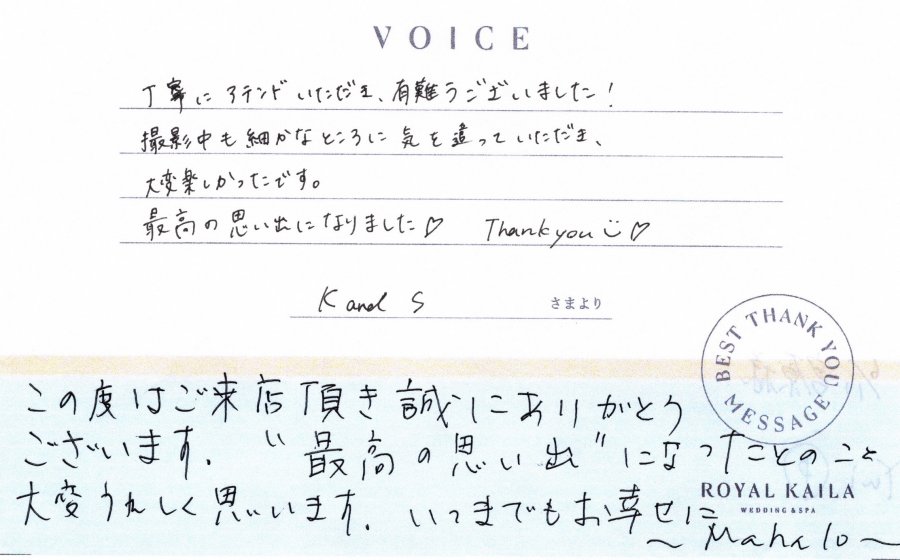 VOICE
丁寧にアテンドいただき、有難うございました！
撮影中も細かなところに気を遣っていただき、
大変楽しかったです。
最高の思い出になりました♡ Thank you ♡
K and S さまより
BEST THANK YOU MESSAGE
この度はご来店頂き誠にありがとう
ございます. "最高の思い出"になったとのこと
大変うれしく思います. いつまでもお幸せに
～Mahalo～
ROYAL KAILA
WEDDING & SPA